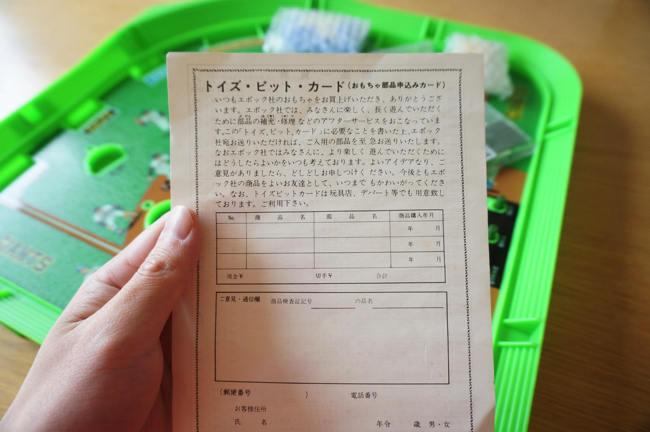 トイズ・ピット・カード(おもちゃ部品申込みカード)
いつもエポック社のおもちゃをお買上げいただき、ありがとうござ
います。エポック社では、みなさんに楽しく、長く遊んでいただく
ために部品の補充・修理などのアフターサービスをおこなっていま
す。この「トイズ、ピット、カード」に必要なことを書いた上、エポック
社宛お送りいただければ、ご入用の部品を至急お送りいたします。
なおエポック社ではみなさんに、より楽しく遊んでいただくために
はどうしたらよいかをいつも考えております。よいアイデアなり、ご
意見がありましたら、どしどしお申しつけください。今後ともエポ
ック社の商品をよいお友達として、いつまでもかわいがってくださ
い。なお、トイズピットカードは玩具店、デパート等でも用意致し
ております。ご利用下さい。
No. 商品名 部品名 商品購入年月
年 月
年 月
年 月
現金¥ 切手¥ 合計
ご意見・通信欄 商品検査証記号 の品名
(郵便番号 ) 電話番号
お客様住所
氏名 年令 歳 男・女
GIANTS